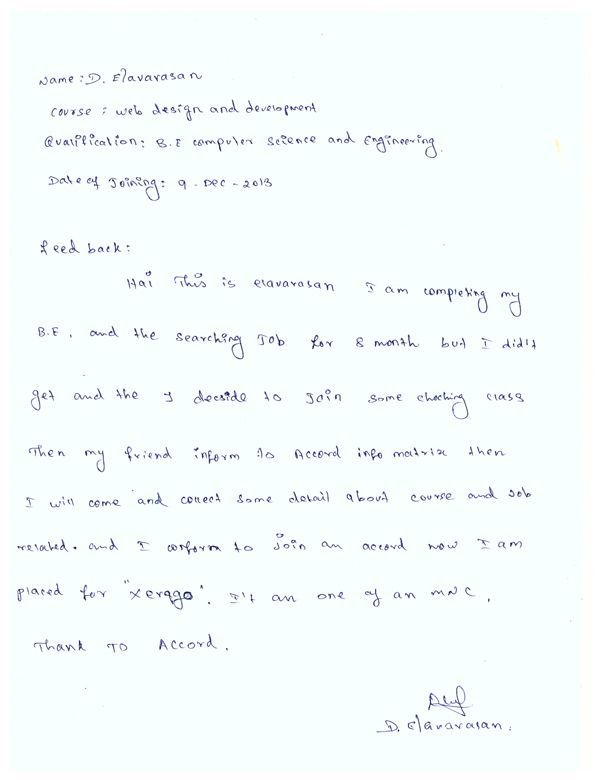 Name : D. Elavarasan
Course : web design and development
Qualification: B.E computer science and Engineering.
Date of Joining: 9 - Dec - 2013
Feed back:
Hai This is elavarasan I am completing my
B.E, and the searching Job for 8 month but I did't
get and the I decside to Join some choching class
Then my friend inform to Accord info matrix then
I will come and collect some detail about course and Job
related. and I conform to join an accord now I am
placed for "xerago". It's an one of an MNC.
Thank To Accord.
D. Elavarasan.